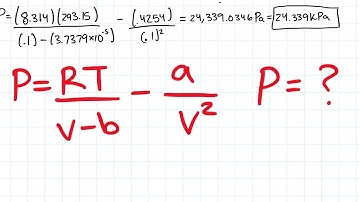 P = (8.314)(293.15) / (.1) - (3.7379×10⁻⁵) - (.4254) / (.1)² = 24,339.0346 Pa = 24.339 kPa
P = RT / v-b - a / v² P = ?